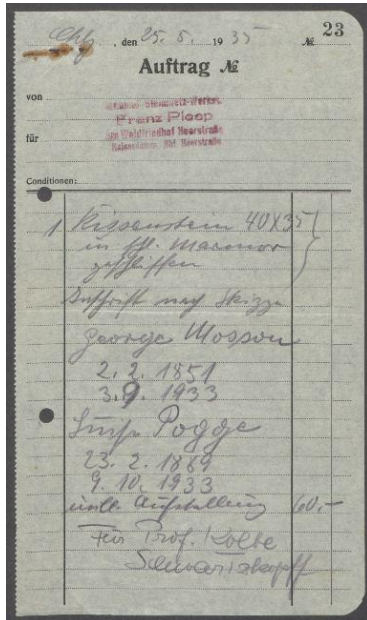 Chlb., den 25. 5. 1935 № 23
Auftrag №
von
Steinmetz-Werkst.
Franz Ploop
am Waldfriedhof Heerstraße
Bhf Heerstraße
für
Conditionen:
1 Kissenstein 40X35
in schl. Marmor
geschliffen
Inschrift nach Skizze
George Mosson
2. 2. 1851
3. 9. 1933
Pogge
23. 2. 1869
9. 10. 1933
Aufstellung 60.-
Für Prof. Kolbe
Schwartzkopff